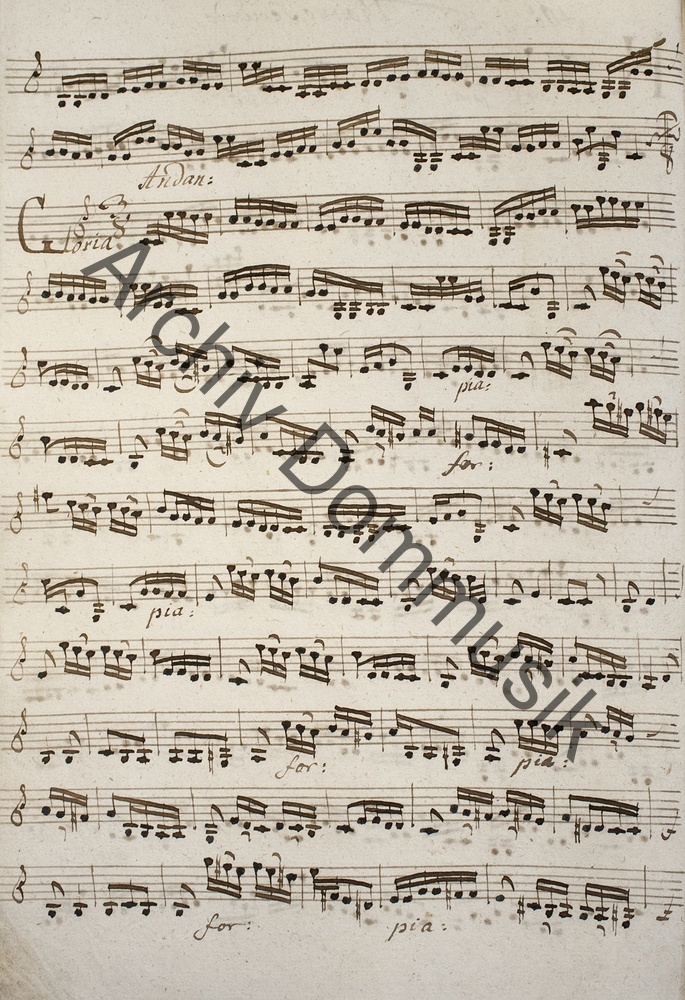 Andan:
Gloria
3
8
pia:
for:
pia:
for:
pia:
for:
pia:
Archiv Dommusik